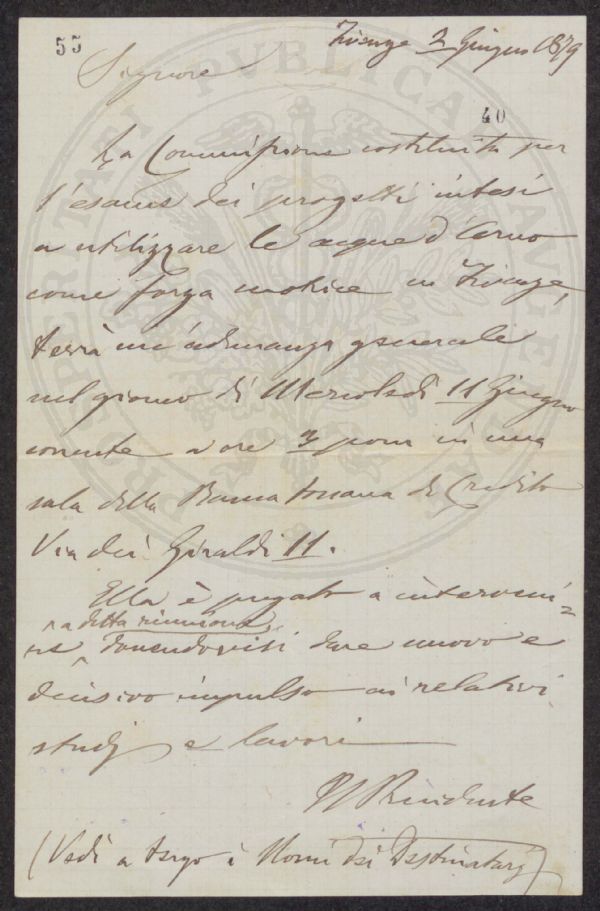 55
Firenze 3 Giugno 1879
Signore
40
La Commissione costituita per
l'esame dei progetti intesi
a utilizzare le acque d'Arno
come forza motrice in Firenze,
terrà un'adunanza generale
nel giorno di Mercoledì 11 Giugno
corrente a ore 3 pom in una
sala della Banca toscana di Credito
Via dei Giraldi 11.
Ella è pregato a interveni=
a detta riunione,
re dovendovisi dare nuovo e
decisivo impulso ai relativi
studj e lavori
Il Presidente
(Vedi a tergo i Nomi dei Destinatarj)
PROSPERITATI PVBLICAE AVGENDAE